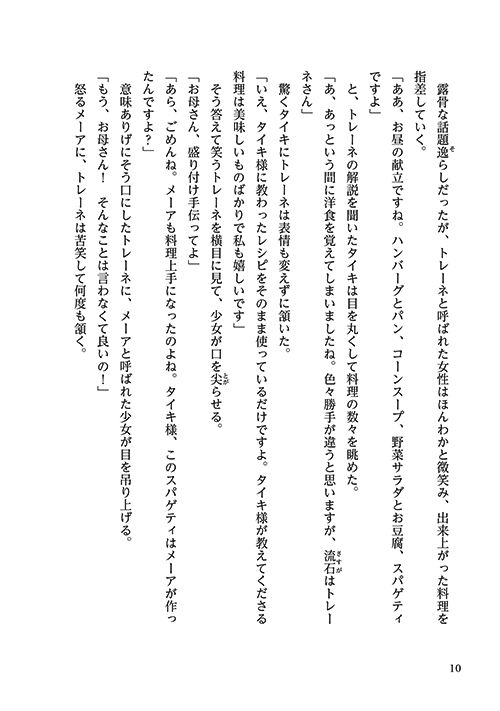 露骨な話題逸らしだったが、トレーネと呼ばれた女性はほんわかと微笑み、出来上がった料理を
指差していく。
「ああ、お昼の献立ですね。ハンバーグとパン、コーンスープ、野菜サラダとお豆腐、スパゲティ
ですよ」
　と、トレーネの解説を聞いたタイキは目を丸くして料理の数々を眺めた。
「あ、あっという間に洋食を覚えてしまいましたね。色々勝手が違うと思いますが、流石はトレー
ネさん」
　驚くタイキにトレーネは表情も変えずに頷いた。
「いえ、タイキ様に教わったレシピをそのまま使っているだけですよ。タイキ様が教えてくださる
料理は美味しいものばかりで私も嬉しいです」
　そう答えて笑うトレーネを横目に見て、少女が口を尖らせる。
「お母さん、盛り付け手伝ってよ」
「あら、ごめんね。メーアも料理上手になったのよね。タイキ様、このスパゲティはメーアが作っ
たんですよ？」
　意味ありげにそう口にしたトレーネに、メーアと呼ばれた少女が目を吊り上げる。
「もう、お母さん！　そんなことは言わなくて良いの！」
　怒るメーアに、トレーネは苦笑して何度も頷く。
10